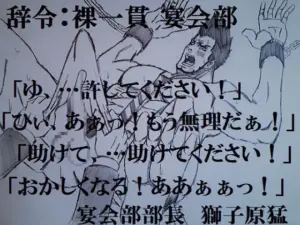 辞令：裸一貫 宴会部
「ゆ、…許してください！」
「ひぃ、あぁっ！もう無理だぁ！」
「助けて、…助けてください！」
「おかしくなる！あぁぁぁっ！」
宴会部部長　獅子原猛